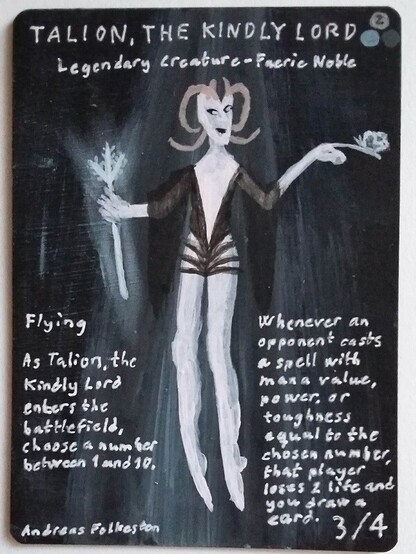 TALION, THE KINDLY LORD 2
Legendary Creature - Faerie Noble
Flying
As Talion, the
Kindly Lord
enters the
battlefield,
choose a number
between 1 and 10.
Whenever an
opponent casts
a spell with
mana value,
power, or
toughness
equal to the
chosen number,
that player
loses 2 life and
you draw a
card.
3/4
Andreas Folkeston